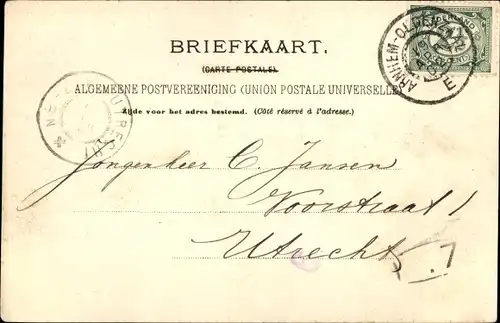 BRIEFKAART.
(CARTE POSTALE)
ALGEMEENE POSTVEREENIGING (UNION POSTALE UNIVERSELLE)
Zijde voor het adres bestemd. (Côté réservé à l'adresse.)
NEDERLAND
ARNHEM-
E
Jongenheer C. Jansen
Voorstraat 1
Utrecht